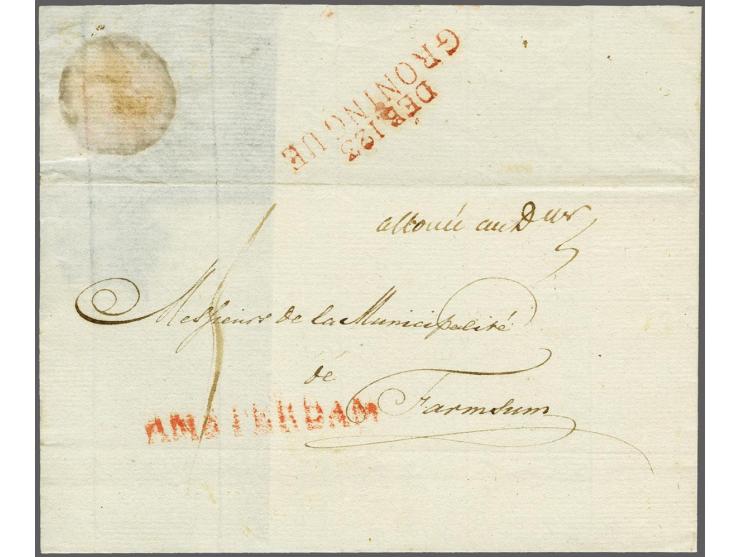 DÉB.123
GRONINGUE
alloué au Dʳ
Messieurs de la Municipalité
de
Farmsum
AMSTERDAM